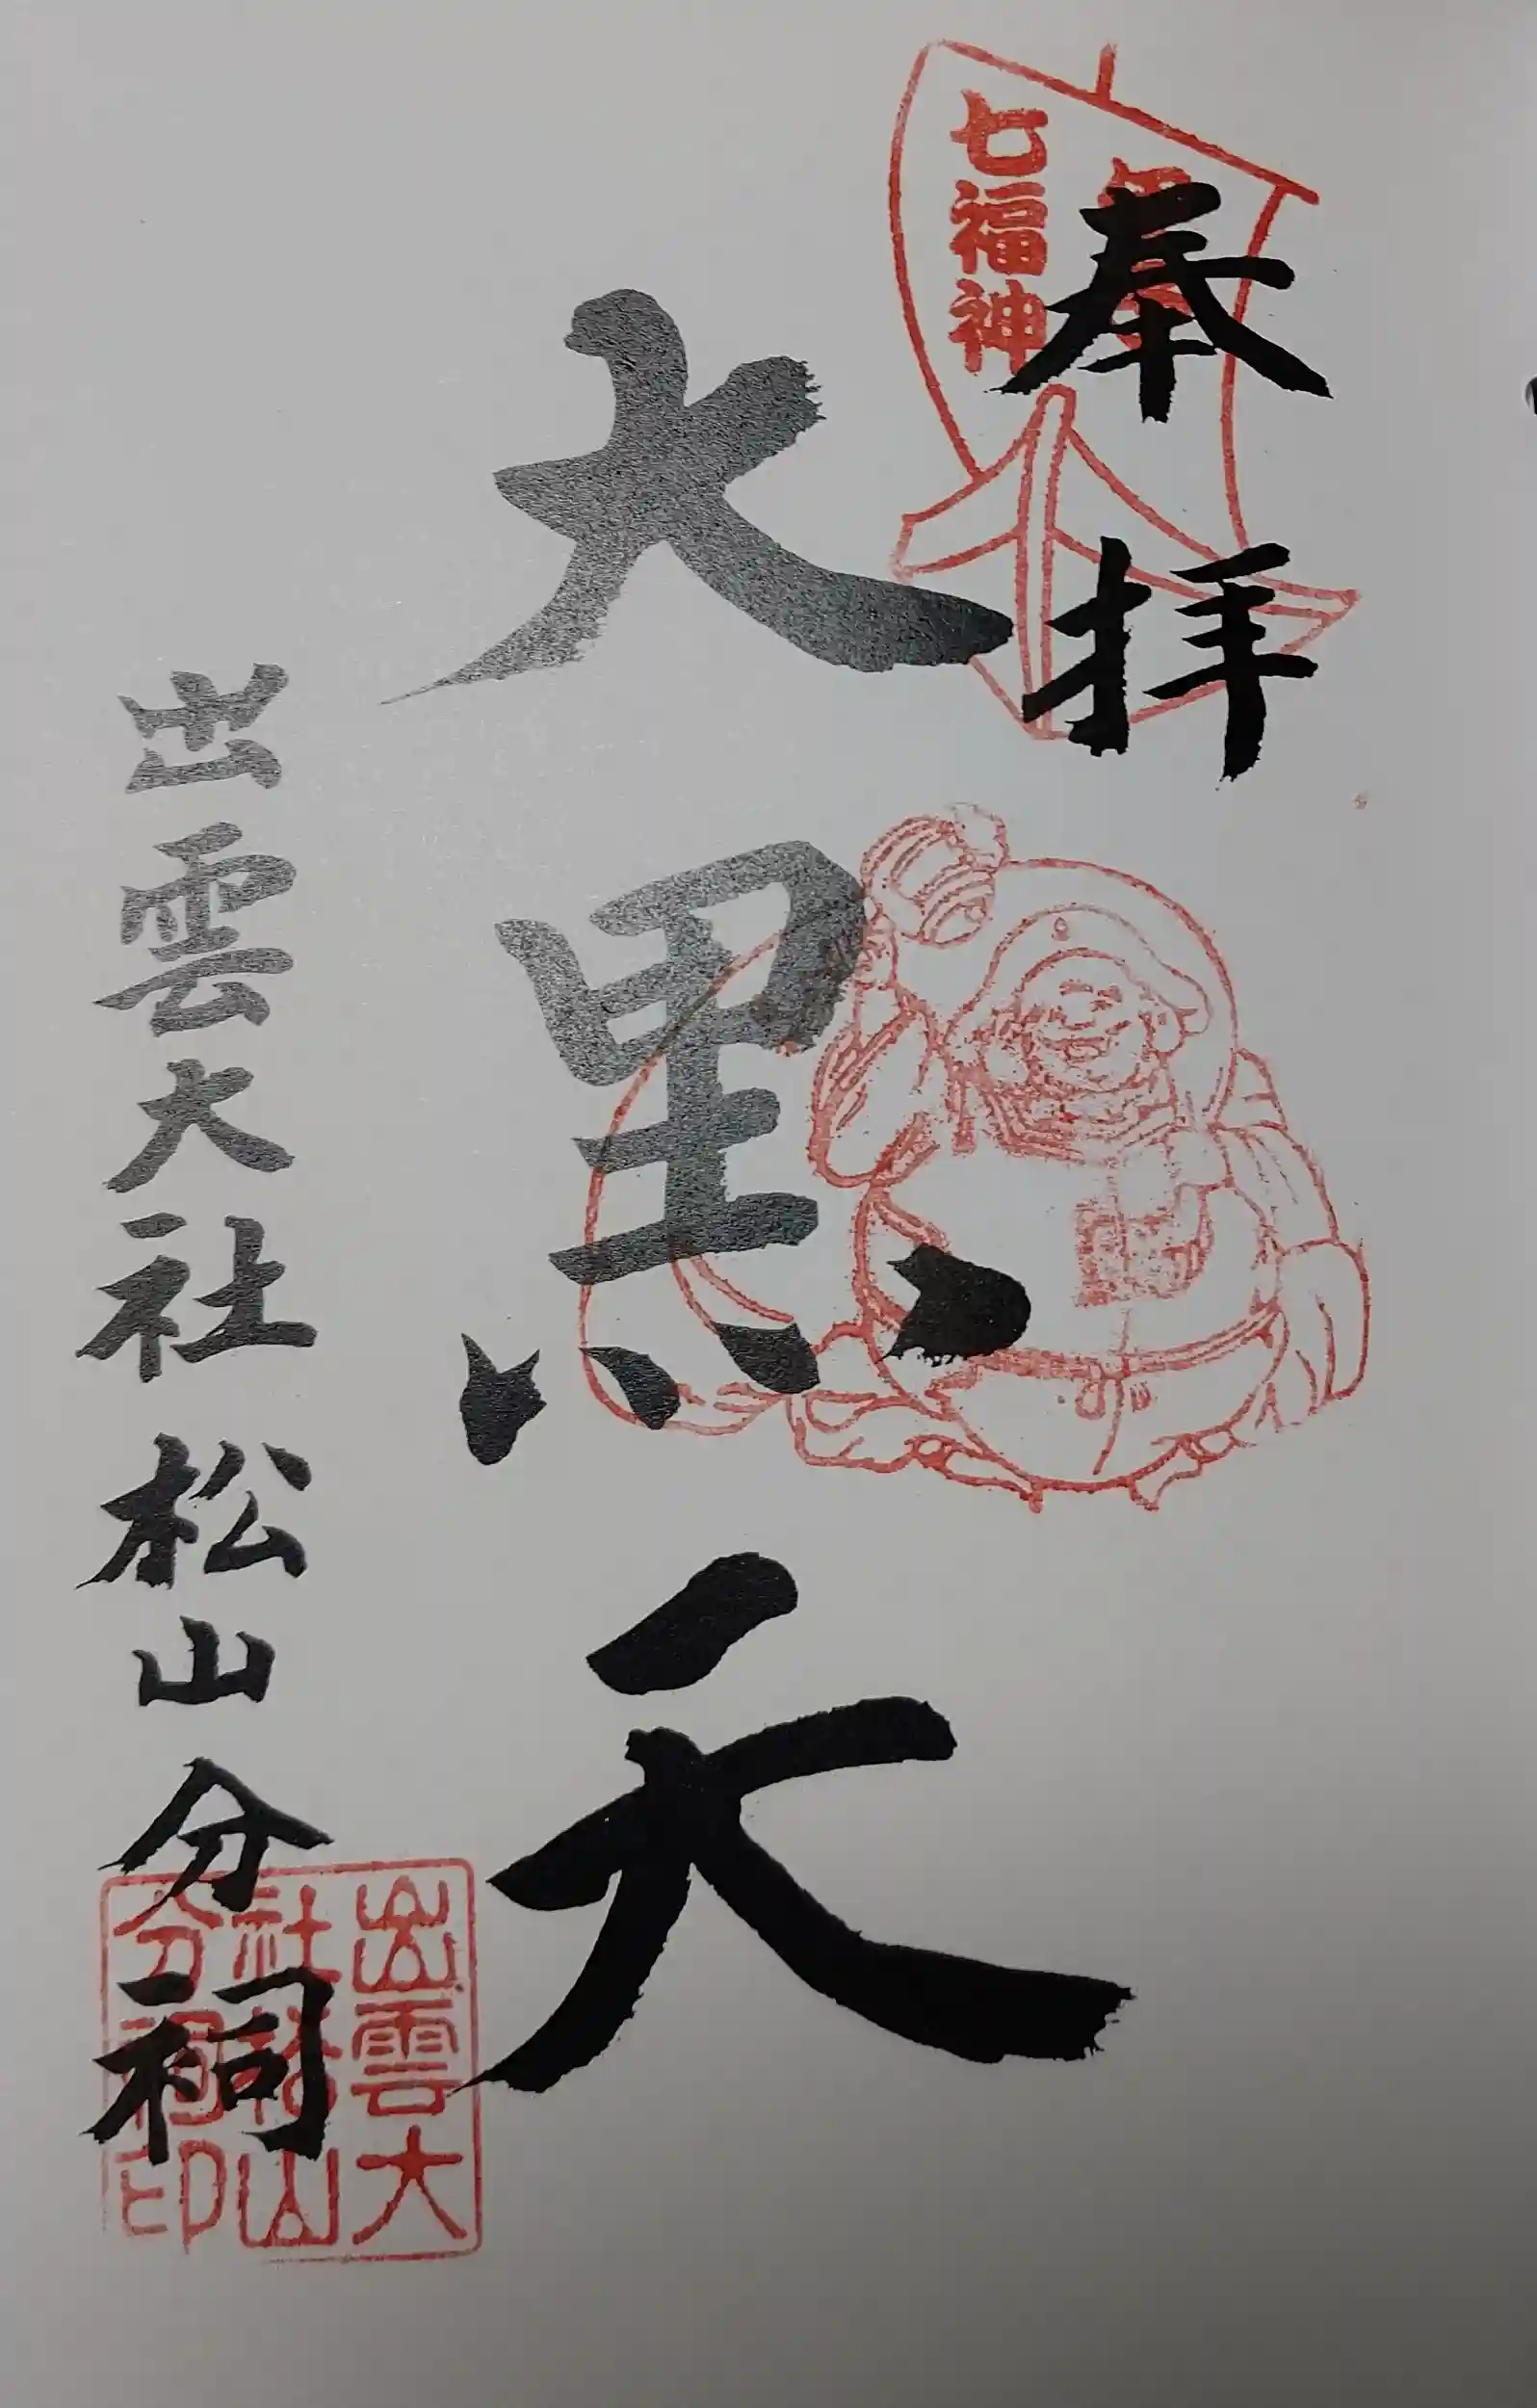 奉拝
七福神
大黒天
出雲大社松山分祠
出雲大
社松山
分祠印